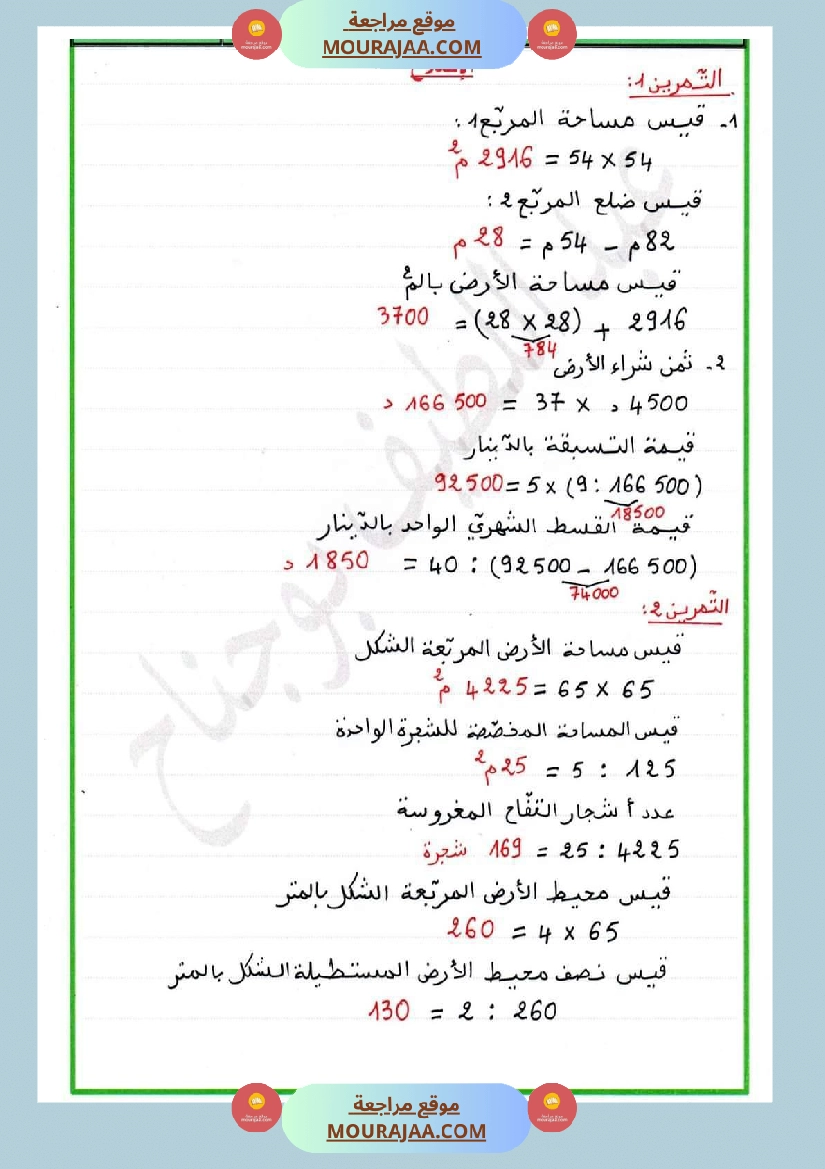 موقع مراجعة
MOURAJAA.COM
الإصلاح
التّمرين 1:
1- قيس مساحة المربّع 1:
54 × 54 = 2916 م²
قيس ضلع المربّع 2:
82 م – 54 م = 28 م
قيس مساحة الأرض بالم²
2916 + (28 × 28) = 3700
784
2- ثمن شراء الأرض
4500 د × 37 = 166 500 د
قيمة التسبقة بالدّينار
(166 500 : 9) × 5 = 92500
18500
قيمة القسط الشهريّ الواحد بالدّينار
(166 500 – 92500) : 40 = 1850 د
74000
التّمرين 2:
قيس مساحة الأرض المربّعة الشكل
65 × 65 = 4225 م²
قيس المساحة المخصّصة للشجرة الواحدة
125 : 5 = 25 م²
عدد أشجار التفّاح المغروسة
4225 : 25 = 169 شجرة
قيس محيط الأرض المربّعة الشكل بالمتر
65 × 4 = 260
قيس نصف محيط الأرض المستطيلة الشكل بالمتر
260 : 2 = 130
عبد اللطيف بوجناح
موقع مراجعة
MOURAJAA.COM